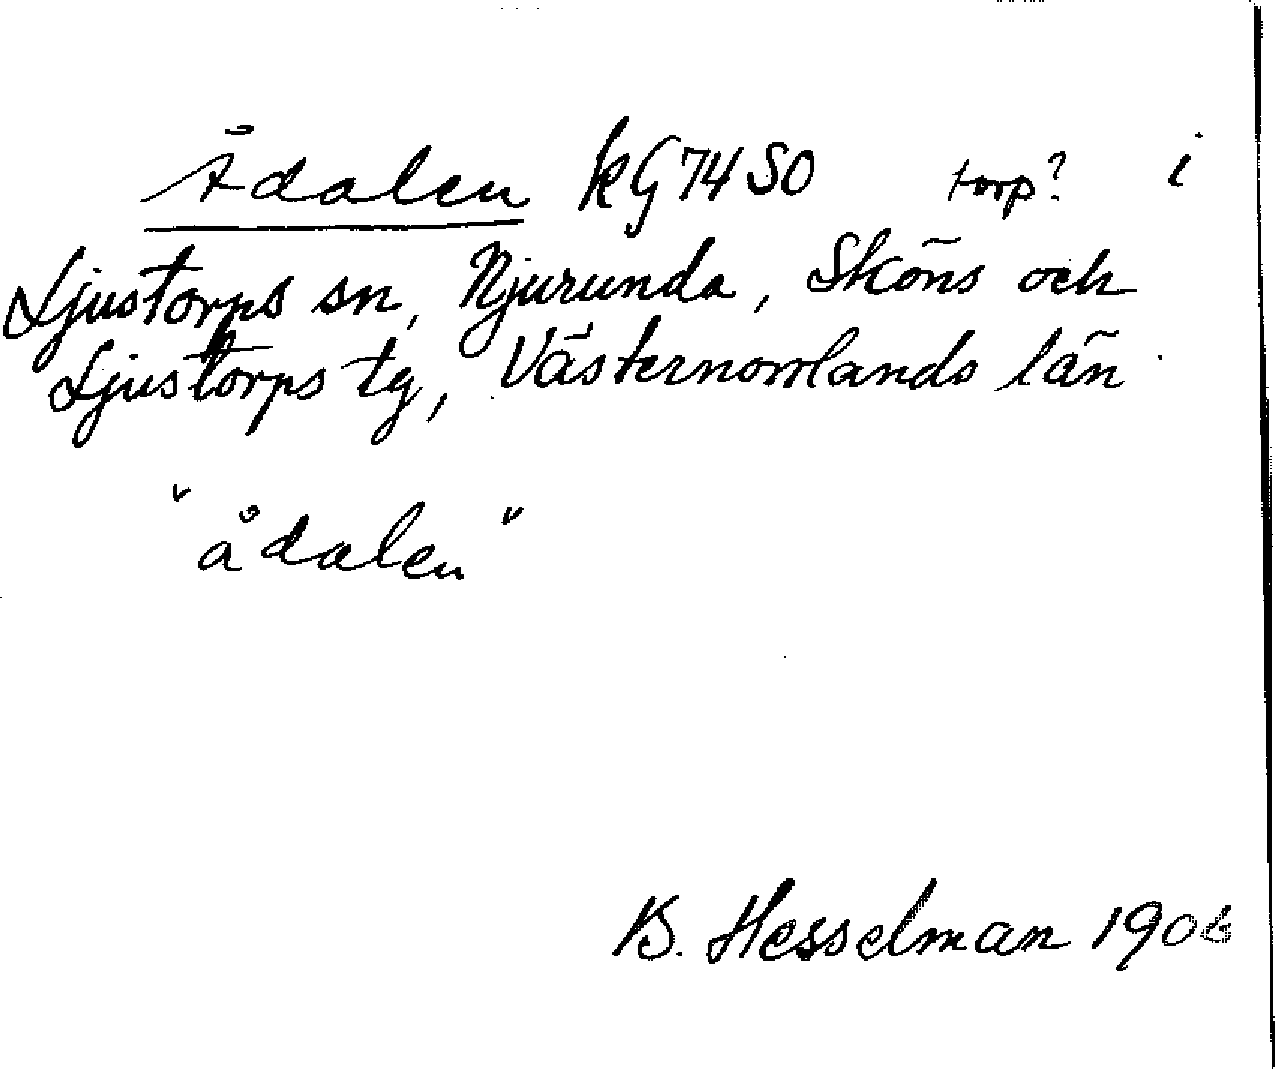 Ådalen kG 74 SO torp? i
Ljustorps sn, Njurunda, Sköns och
Ljustorps tg, Västernorrlands län.
"ådalen"
B. Hesselman 1906